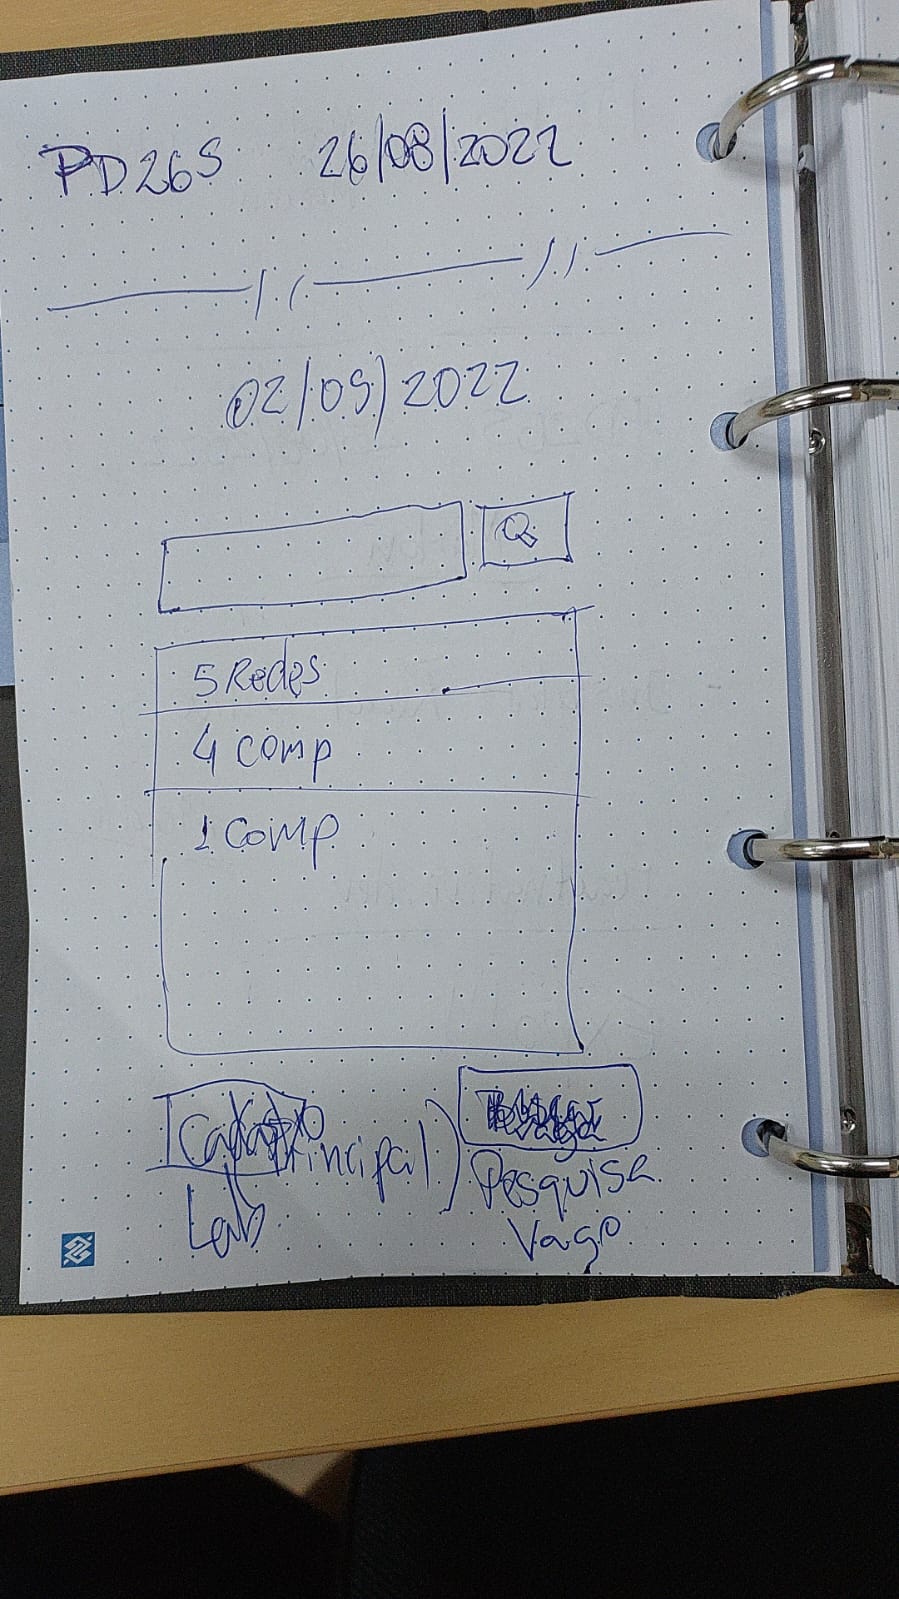 PD26S 26/08/2022
02/09/2022
5 Redes
4 comp
1 comp
Principal
Lab
Pesquisa
Vago